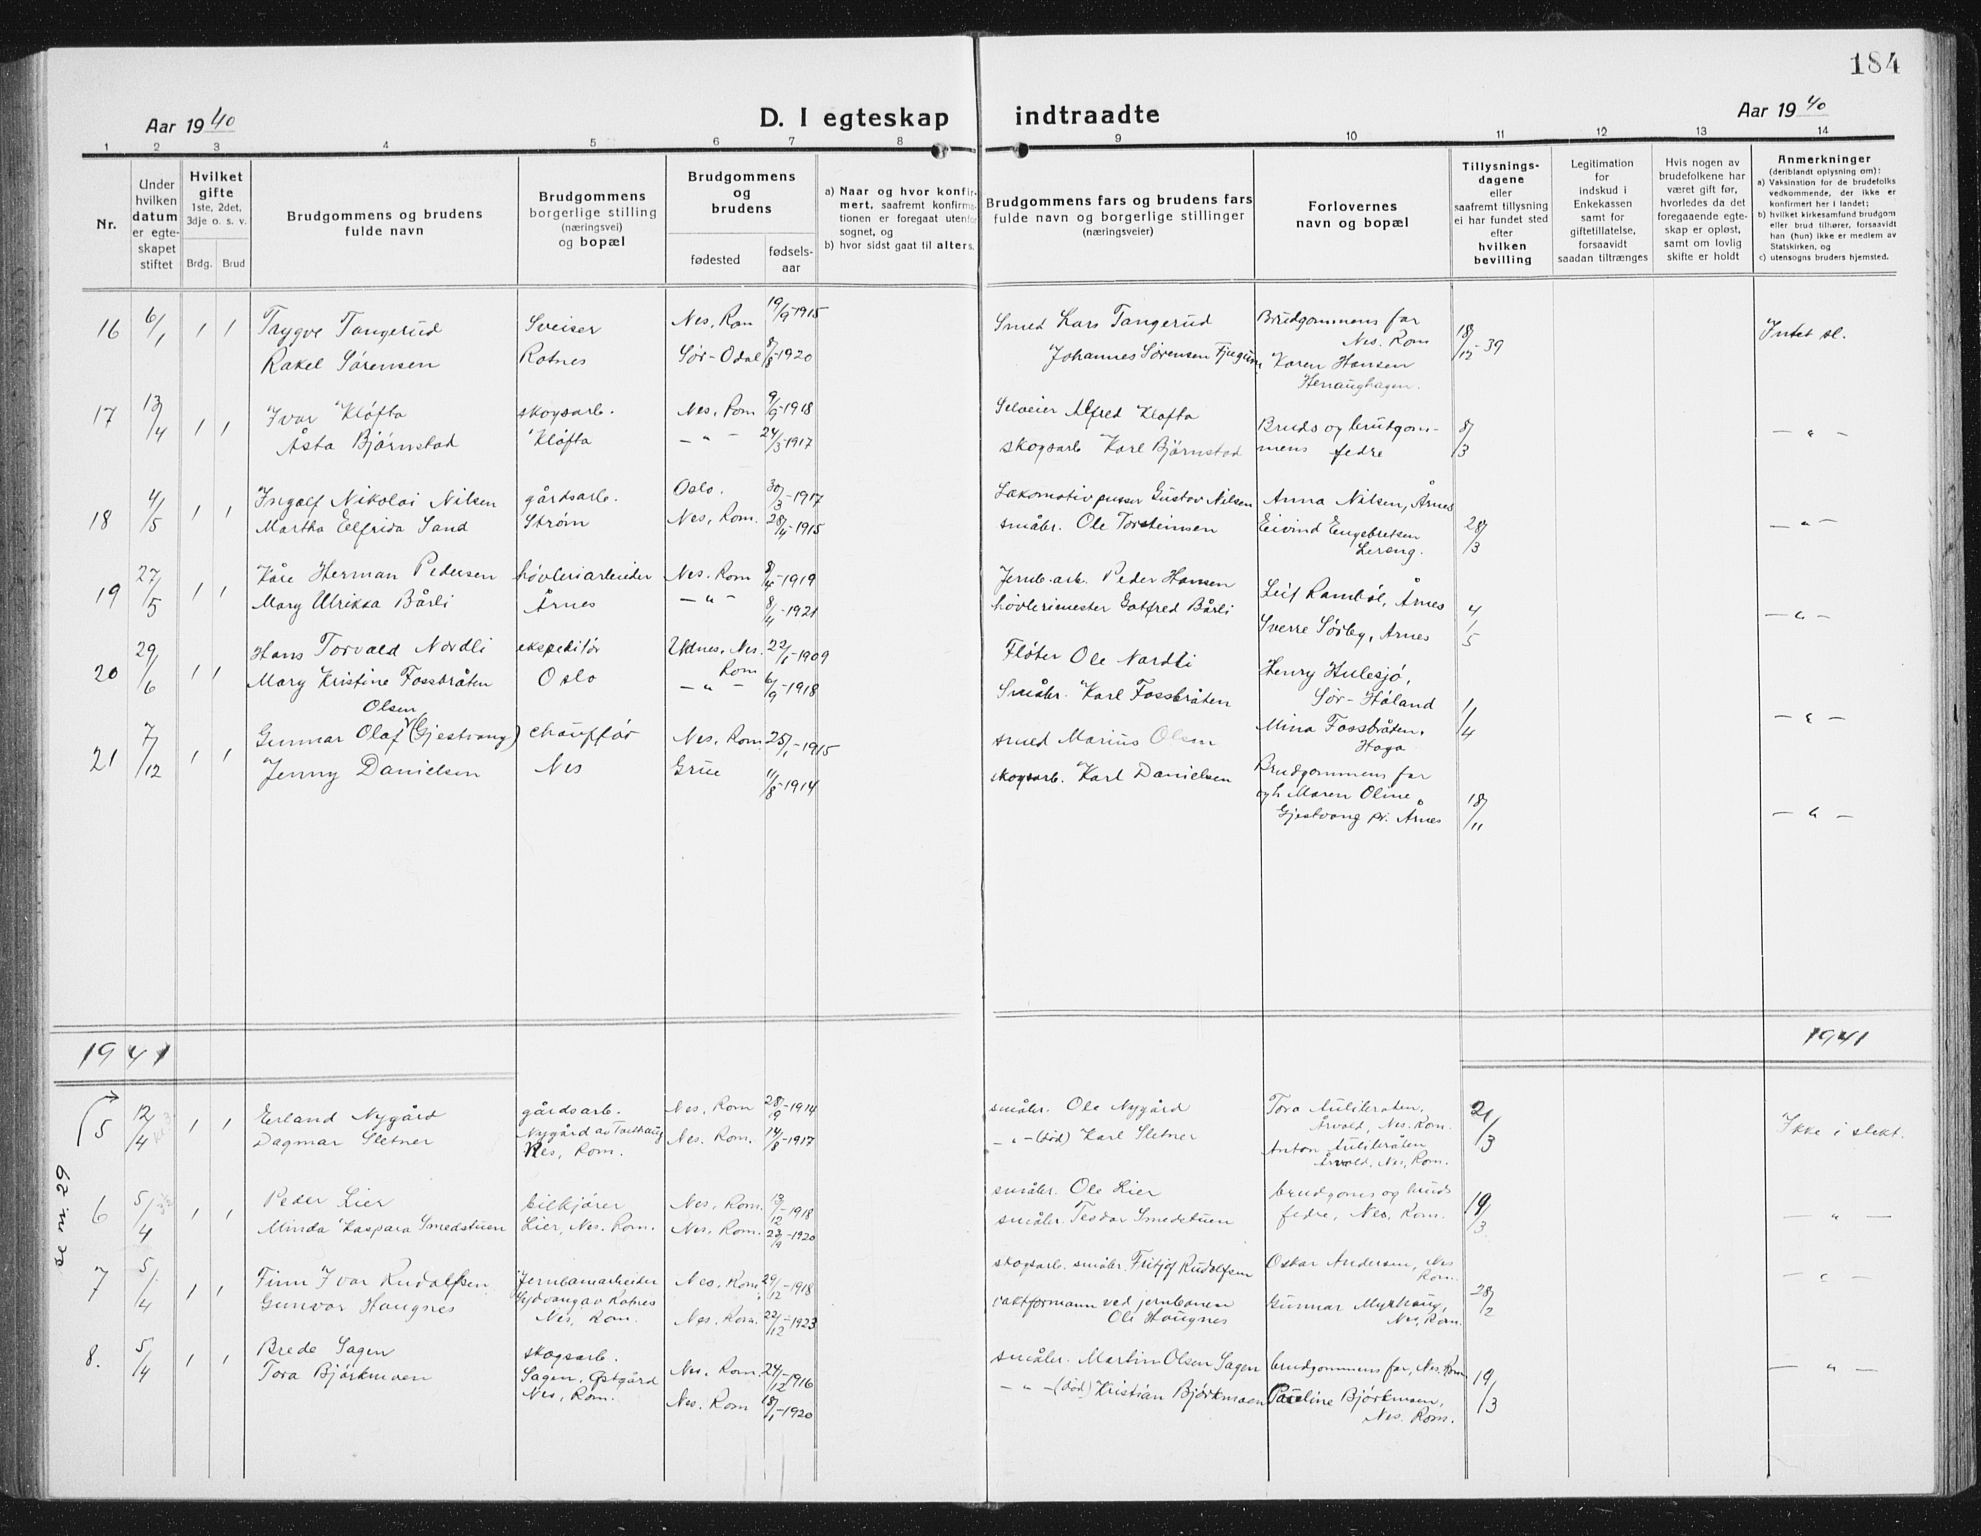 184
Aar 1940
D. I egteskap indtraadte
Aar 1940
1 2 3 4 5 6 7 8 9 10 11 12 13 14
Nr.
Under hvilken datum er egteskapet stiftet
Hvilket gifte 1ste, 2det, 3dje o. s. v.
Brdg. Brud
Brudgommens og brudens fulde navn
Brudgommens borgerlige stilling (næringsvei) og bopæl
Brudgommens og brudens
fødested
fødselsaar
a) Naar og hvor konfirmert, saafremt konfirmationen er foregaat utenfor sognet, og
b) hvor sidst gaat til alters.
Brudgommens fars og brudens fars fulde navn og borgerlige stillinger (næringsveier)
Forlovernes navn og bopæl
Tillysningsdagene eller saafremt tillysning ei har fundet sted efter hvilken bevilling
Legitimation for indskud i Enkekassen samt for giftetillatelse, forsaavidt saadan tiltrænges
Hvis nogen av brudefolkene har været gift før, hvorledes da det foregaaende egteskap er opløst, samt om lovlig skifte er holdt
Anmerkninger (deriblandt oplysning om):
a) Vaksination for de brudefolks vedkommende, der ikke er konfirmert her i landet;
b) hvilket kirkesamfund brudgom eller brud tilhører, forsaavidt han (hun) ikke er medlem av Statskirken, og
c) utensogns bruders hjemsted.
16 6/1 1 1 Trygve Tangerud Sveiser Nes, Rom 19/9-1915 Smed Lars Tangerud Brudgommens far Nes. Rom 18/12-39 Intet sl.
Rakel Sørensen Rotnes Sør-Odal 8/8-1920 Johannes Sørensen Karen Hansen
17 13/4 1 1 Ivar Kløfta skogsarb. Nes, Rom 9/9-1918 Selveier Alfred Kløfta Bruds og brudgommens fedre 8/3 — " —
Åsta Bjørnstad Kløfta — " — 24/3-1917 skogsarb Karl Bjørnstad
18 4/5 1 1 Ingolf Nikolai Nilsen gårdsarb. Oslo. 30/3-1917 Lokomotivpusser Gustav Nilsen Anna Nilsen, Årnes 28/3 — " —
Martha Elfrida Sand Strøm Nes, Rom. 28/4-1915 småbr. Ole Torsteinsen Eivind Engebretsen Lereng.
19 27/5 1 1 Kåre Herman Pedersen høvleriarbeider Nes. Rom 8/4-1919 Jernb.arb. Peder Hansen Leif Rambøl, Årnes 4/5 — " —
Mary Ulrikka Bårli Årnes — " — 8/4-1921 høvlerimester Gotfred Bårli Sverre Sørby, Årnes
20 29/6 1 1 Hans Torvald Nordli ekspeditør Udnes, Nes. Rom 22/1-1909 Fløter Ole Nordli Henry Hulesjø, Sør-Høland 1/4 — " —
Mary Kristine Fossbråten Oslo — " — 6/9-1918 Småbr. Karl Fossbråten Mina Fossbråten, Haga
21 7/12 1 1 Gunnar Olaf Olsen (Gjestvang) chauffør Nes, Rom. 25/1-1915 smed Marius Olsen Brudgommens far 18/11 — " —
Jenny Danielsen Nes Grue 11/8-1914 skogsarb. Karl Danielsen og h. Maren Oline Gjestvang pr. Årnes
1941
1941
5 12/4 1 1 Erland Nygård gårdsarb. Nes, Rom 28/9-1914 småbr. Ole Nygård Tora Aulibråten, Årvold, Nes. Rom. 21/3 Ikke i slekt.
Dagmar Sletner Nygård av Tvedhaug Nes, Rom. Nes. Rom. 14/8-1917 — " — (død) Karl Sletner Anton Aulibråten Årvold, Nes, Rom.
se nr. 29
6 5/4 1 1 Peder Lier bilkjører Nes, Rom. 13/12-1918 småbr. Ole Lier brudgoms og bruds fedre, Nes, Rom. 19/3 — " —
Minda Kaspara Smedstuen Lier, Nes, Rom. Nes, Rom. 23/9-1920 småbr. Teodor Smedstuen
7 5/4 1 1 Finn Ivar Rudolfsen Jernbanearbeider Nes, Rom 29/12-1918 skogsarb. småbr. Fritjof Rudolfsen Oskar Andersen, Nes Rom. 28/2 — " —
Gunvor Haugnes av Rotnes Nes, Rom. Nes, Rom. 22/12-1923 vaktformann ved jernbanen Ole Haugnes Gunnar Myrhaug, Nes, Rom.
8. 5/4 1 1 Brede Sagen skogsarb. Nes, Rom. 24/12-1916 småbr. Martin Olsen Sagen brudgommens far, Nes, Rom. 19/3 — " —
Tora Bjørkmoen Sagen, Østgård Nes, Rom. Nes. Rom 18/1-1920 — " — (død) Kristian Bjørkmoen Pauline Bjørkmoen, Nes. Rom.